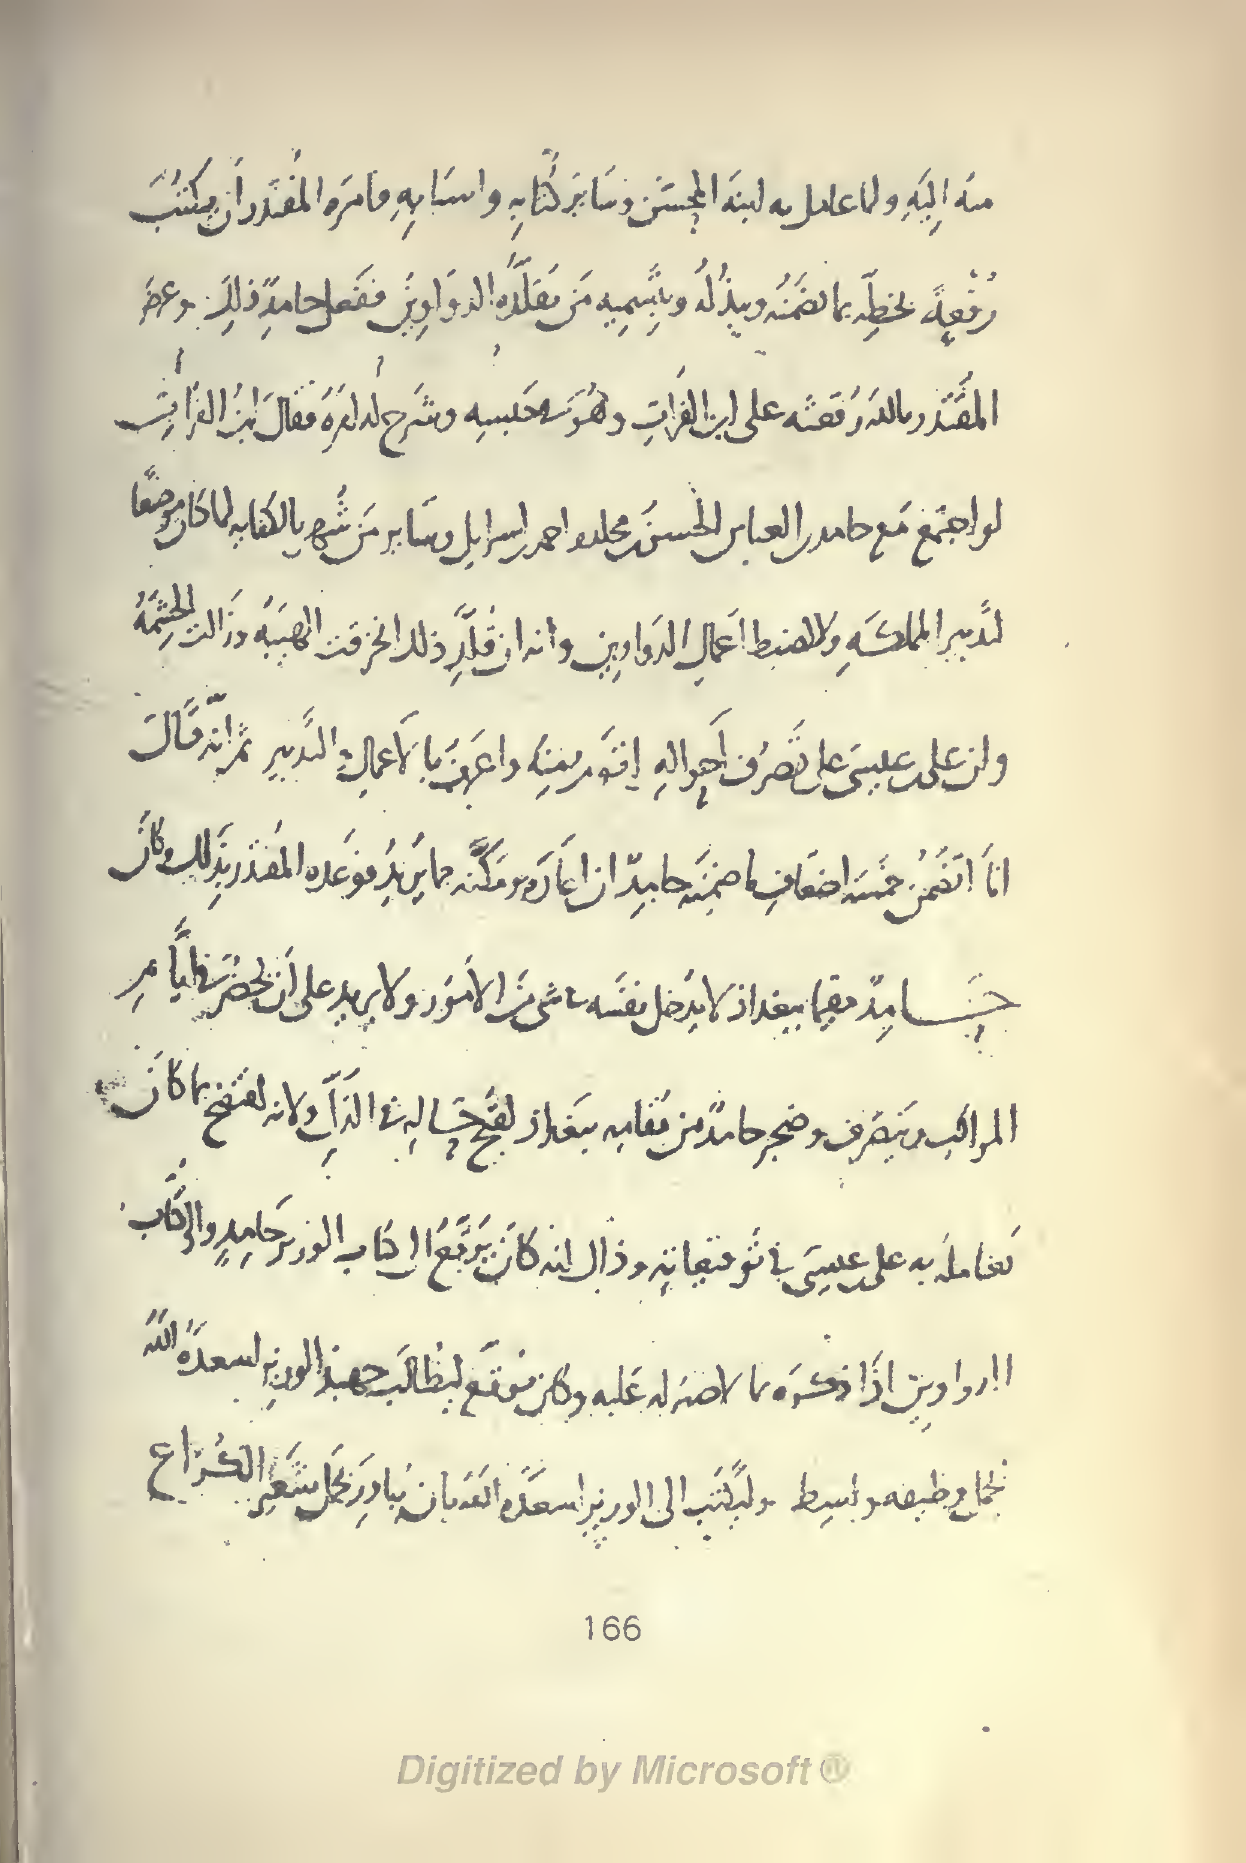 منه اليه ولما عامل به ابنه المحسن وسائر كتابه واسبابه فامره المقتدر أن يكتب
رقعة بخطه بما تضمنه ويبذله ويسميه من يقلده الدواوين ففعل حامد ذلك وعرض
المقتدر بالله رقعته على ابن الفرات وهو في حبسه وشرح له امره فقال ابن الفرات
لو اجتمع مع حامد بن العباس الحسن بن مخلد واحمد بن اسرايل وساير من شهر بالكفايه لما كان موضعًا
لتدبير المملكه ولا لضبط أعمال الدواوين وانه ان قلد ذلك انخرقت الهيبه وزالت الحشمة
وان على بن عيسى على تصرف أحواله اقوم منه واعرف بالاعمال والتدبير ثم انه قال
انا اتضمن خمسه اضعاف ما ضمنه حامد ان اعاده ومكنه مما يريد فوعده المقتدر بذلك وكان
حامد مقيما ببغداذ لا يدخل نفسه في شى من الأمور ولا يزيد على أن يحضر في ايام
المراكب وينصرف وضجر حامد من مقامه ببغداذ لقبح حاله في الذل ولانه افتضح بما كان
يعامله به على بن عيسى في توقيعاته وذاك انه كان يوقع الى كتاب الوزير حامد والى كتاب
الدواوين اذا ذكره بما لا صبر له عليه وكان يوقع ليطالب جهبذ الوزير اسعده الله
بحمل وظيفه واسط وليكتب الى الوزير اسعده الله بان يبادر بحمل شعير الكراع
166
Digitized by Microsoft ®